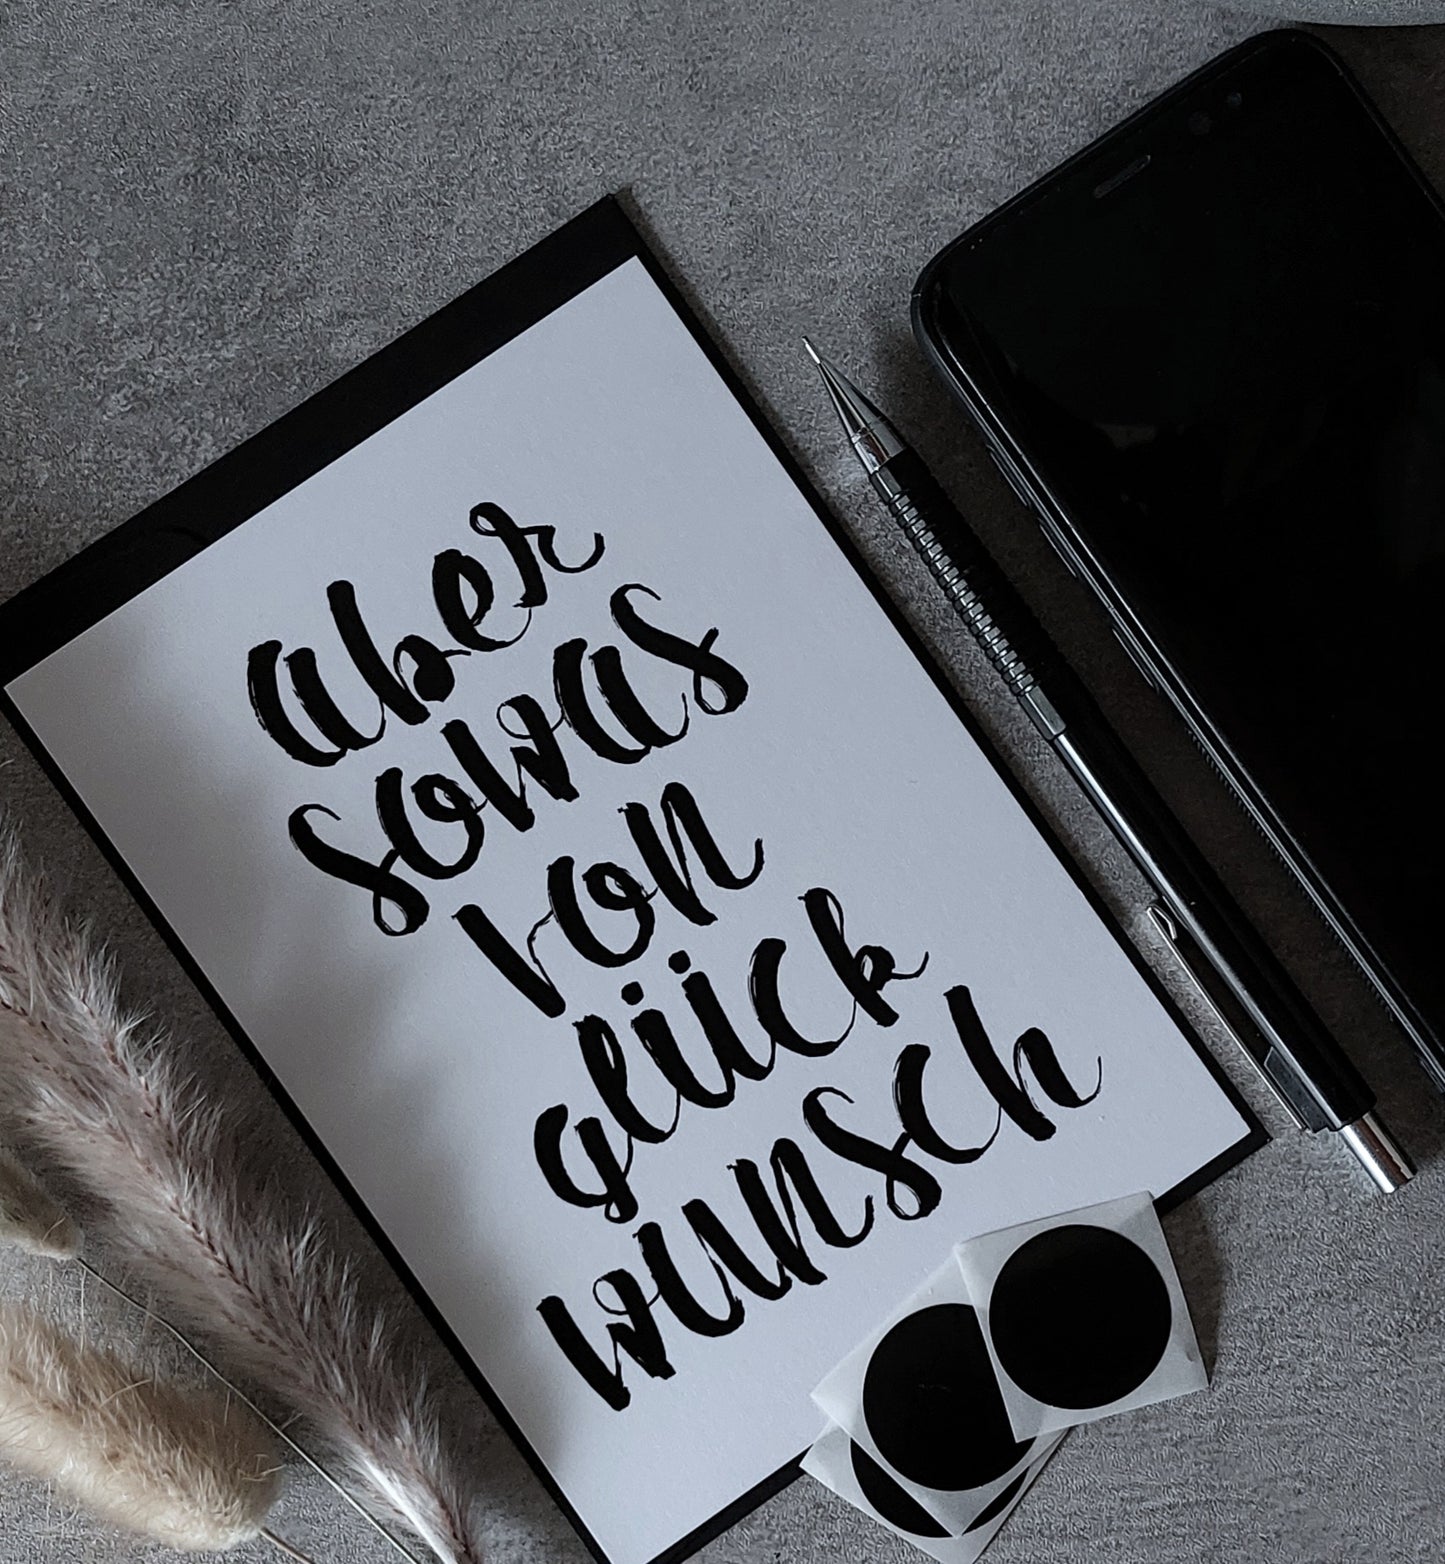 aber
sowas
von
glück
wunsch